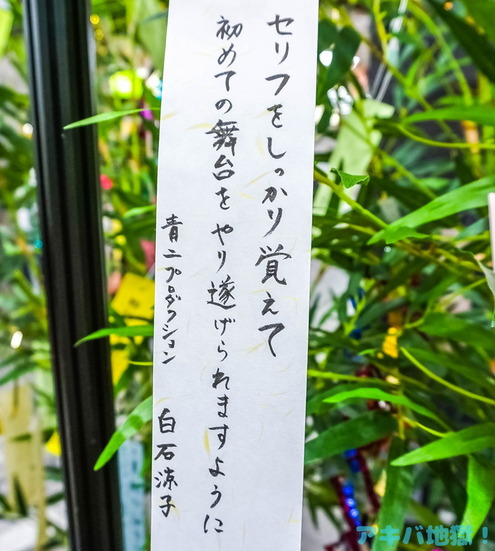 セリフをしっかり覚えて
初めての舞台をやり遂げられますように
青二プロダクション 白石涼子
アキバ地獄!